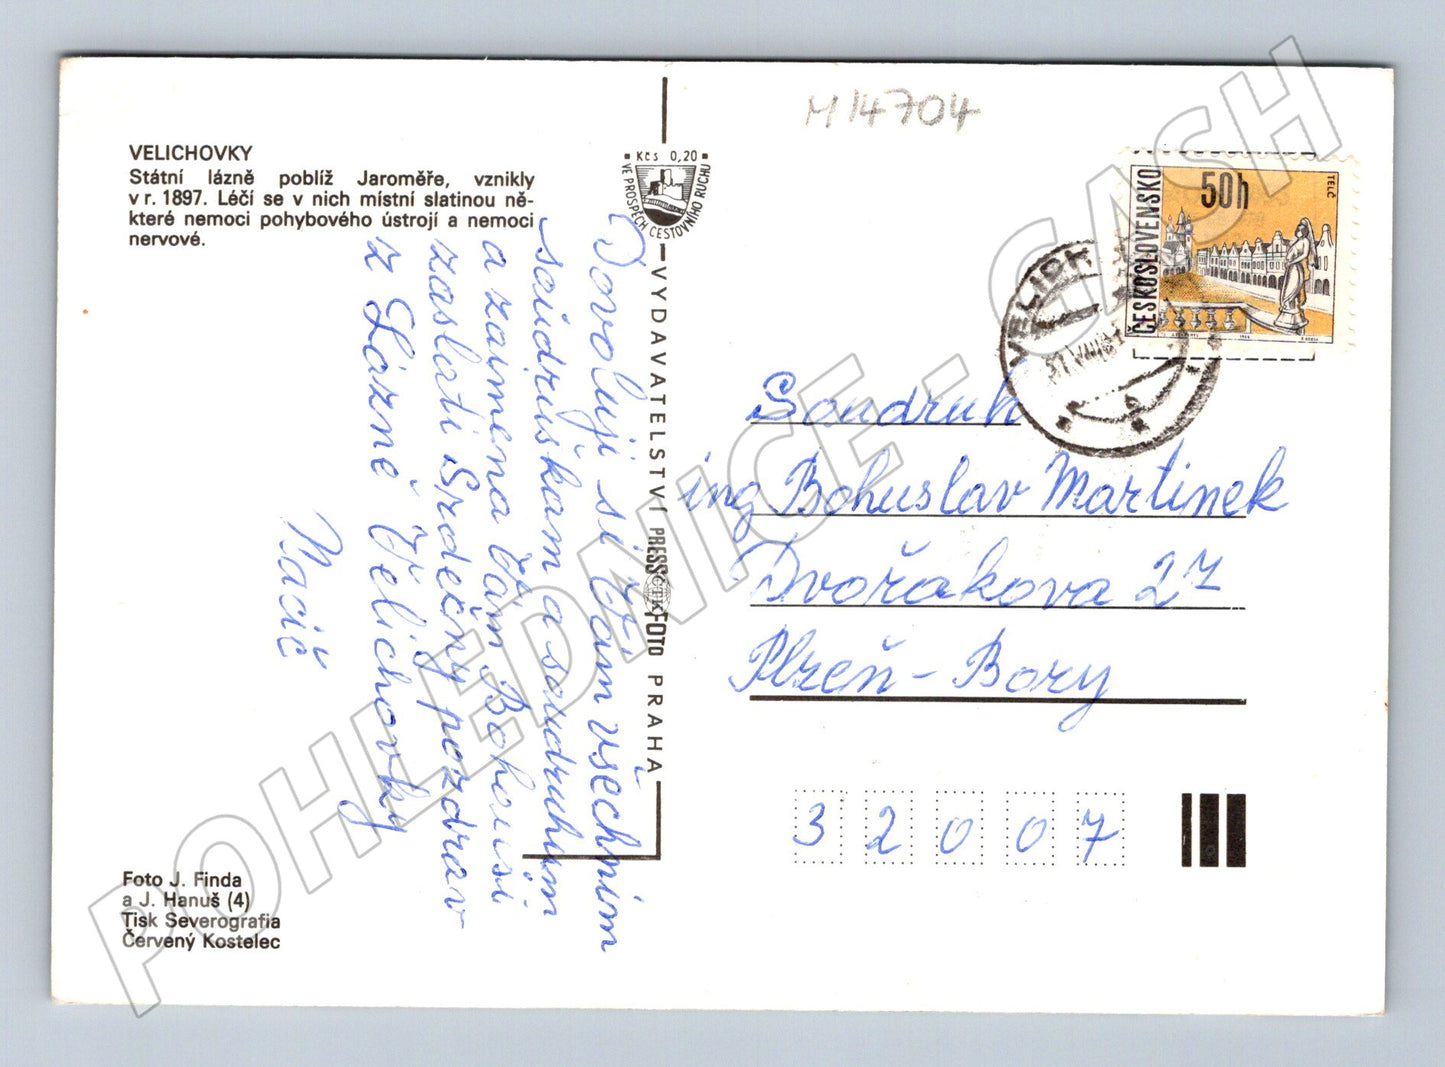 M 14704
VELICHOVKY
Státní lázně poblíž Jaroměře, vznikly
v r. 1897. Léčí se v nich místní slatinou ně-
které nemoci pohybového ústrojí a nemoci
nervové.
Kčs 0,20
VE PROSPĚCH CESTOVNÍHO RUCHU
VYDAVATELSTVÍ PRESSFOTO PRAHA
ČTK
ČESKOSLOVENSKO
50h
TELČ
1966
VELICH
Dovoluji si Vám všechním
soudruškam a soudruhům
a zamena Vám Bohouši
zaslati Srdečný pozdrav
z Lázně Velichovky
Soudruh
ing Bohuslav Martinek
Dvořákova 27
Plzeň - Bory
32007
Foto J. Finda
a J. Hanuš (4)
Tisk Severografia
Červený Kostelec
POHLEDNICE - CASH